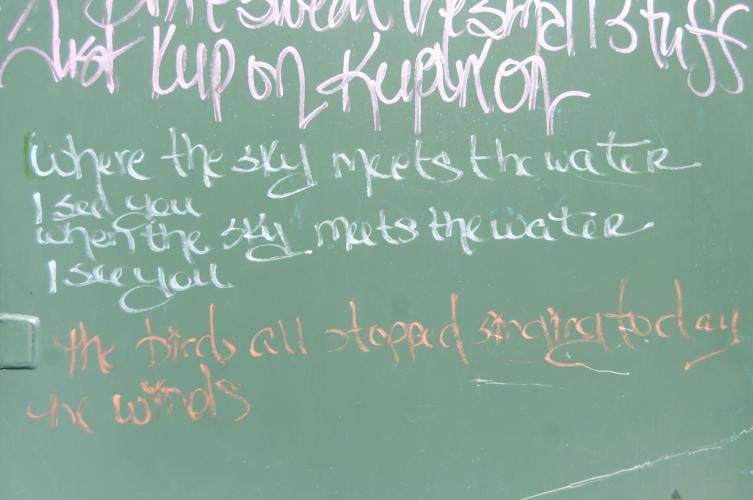 sweat the small stuff
Just Kup on Kupin on
Where the sky meets the water
I see you
when the sky meets the water
I see you
the birds all stopped singing today
the winds